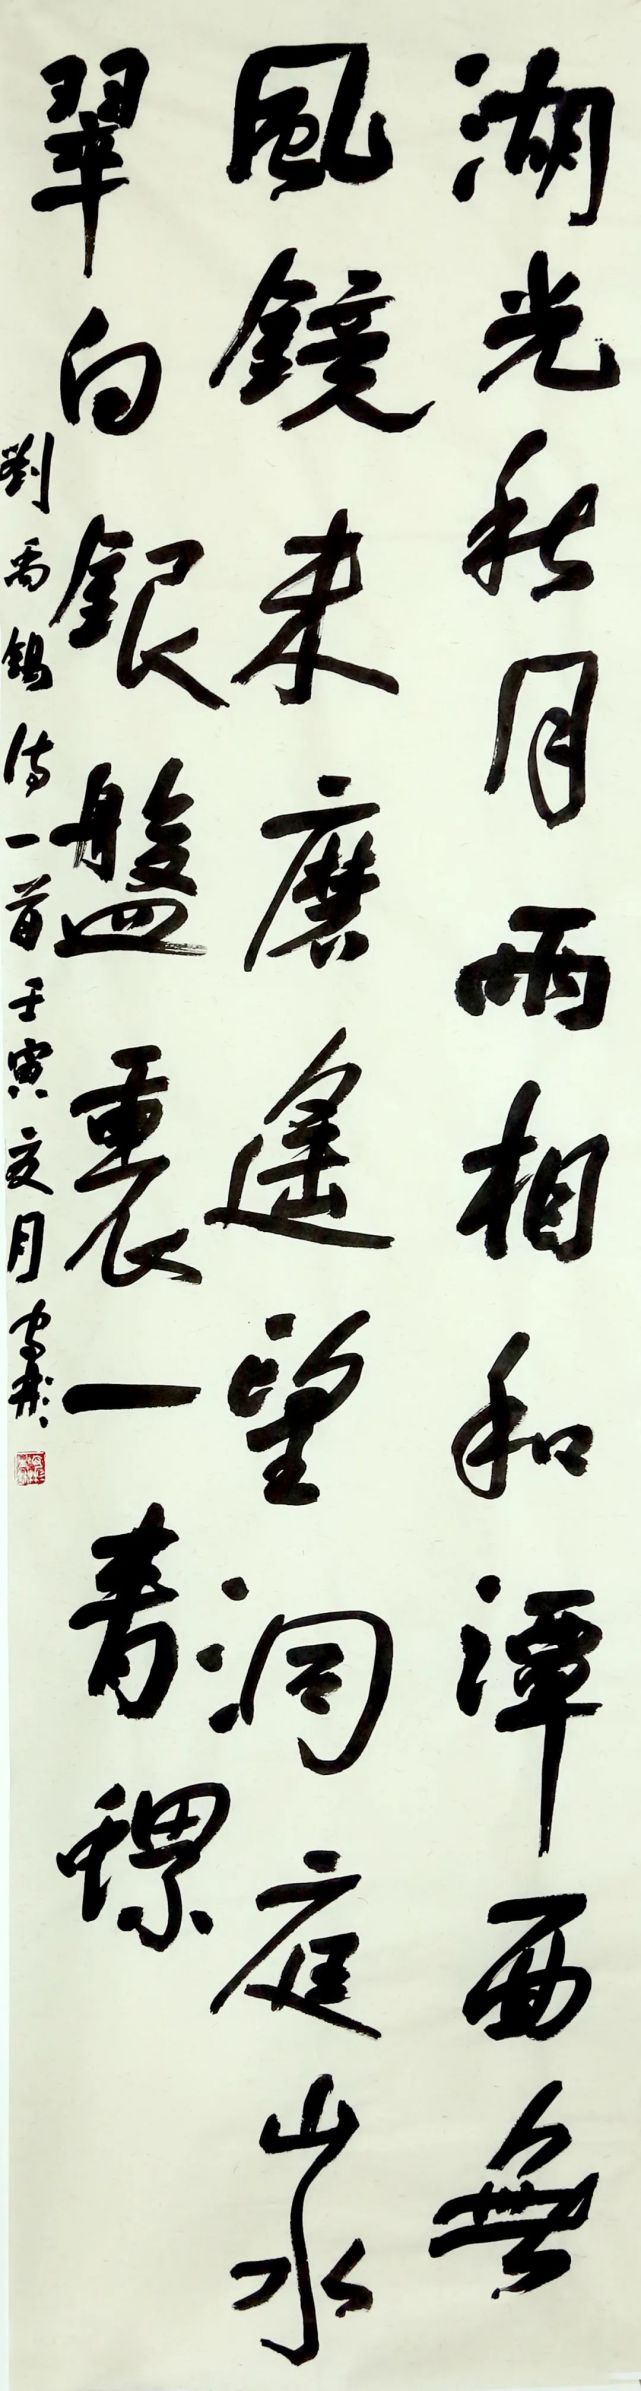 湖光秋月兩相和潭面無
風鏡未磨遙望洞庭山水
翠白銀盤裏一青螺
劉禹錫诗一首壬寅文月